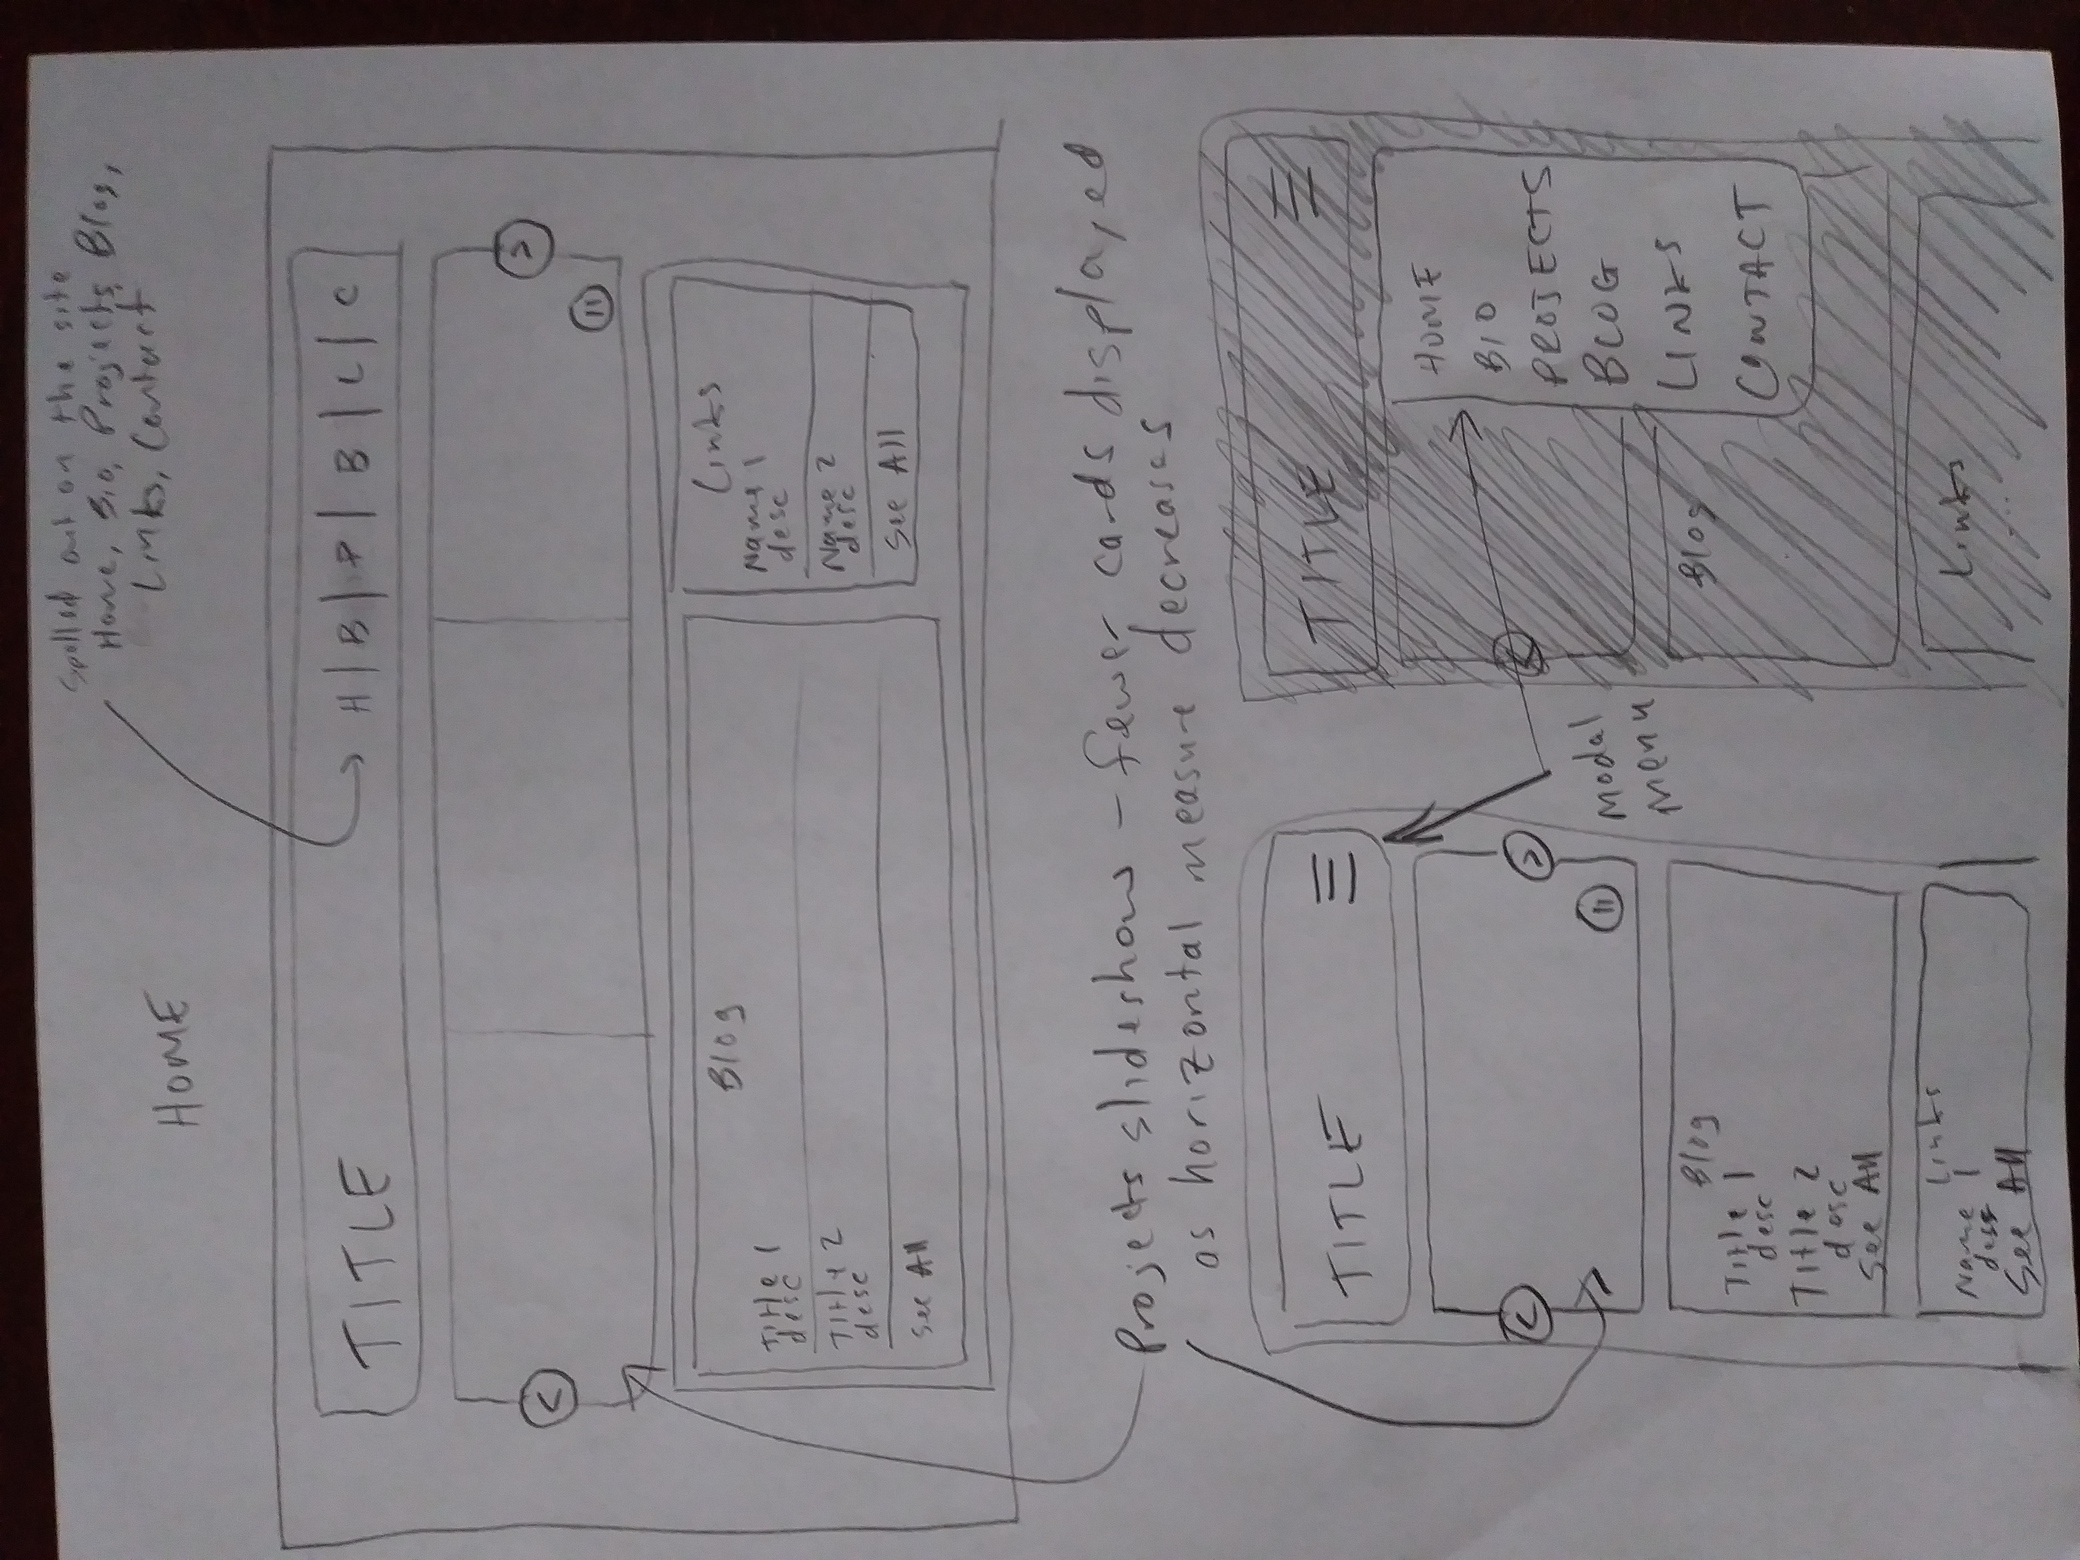 Spelled out on the site
Home, Bio, Projects, Blog,
Links, Contact
HOME
TITLE
H | B | P | B | L | C
<
>
II
Blog
Title 1
desc
Title 2
desc
See All
Links
Name 1
desc
Name 2
desc
See All
Projects slideshow – fewer cards displayed
as horizontal measure decreases
TITLE
<
>
II
Blog
Title 1
desc
Title 2
desc
See All
Links
Name 1
desc
See All
Modal
Menu
TITLE
<
HOME
BIO
PROJECTS
BLOG
LINKS
CONTACT
Blog
Links
...